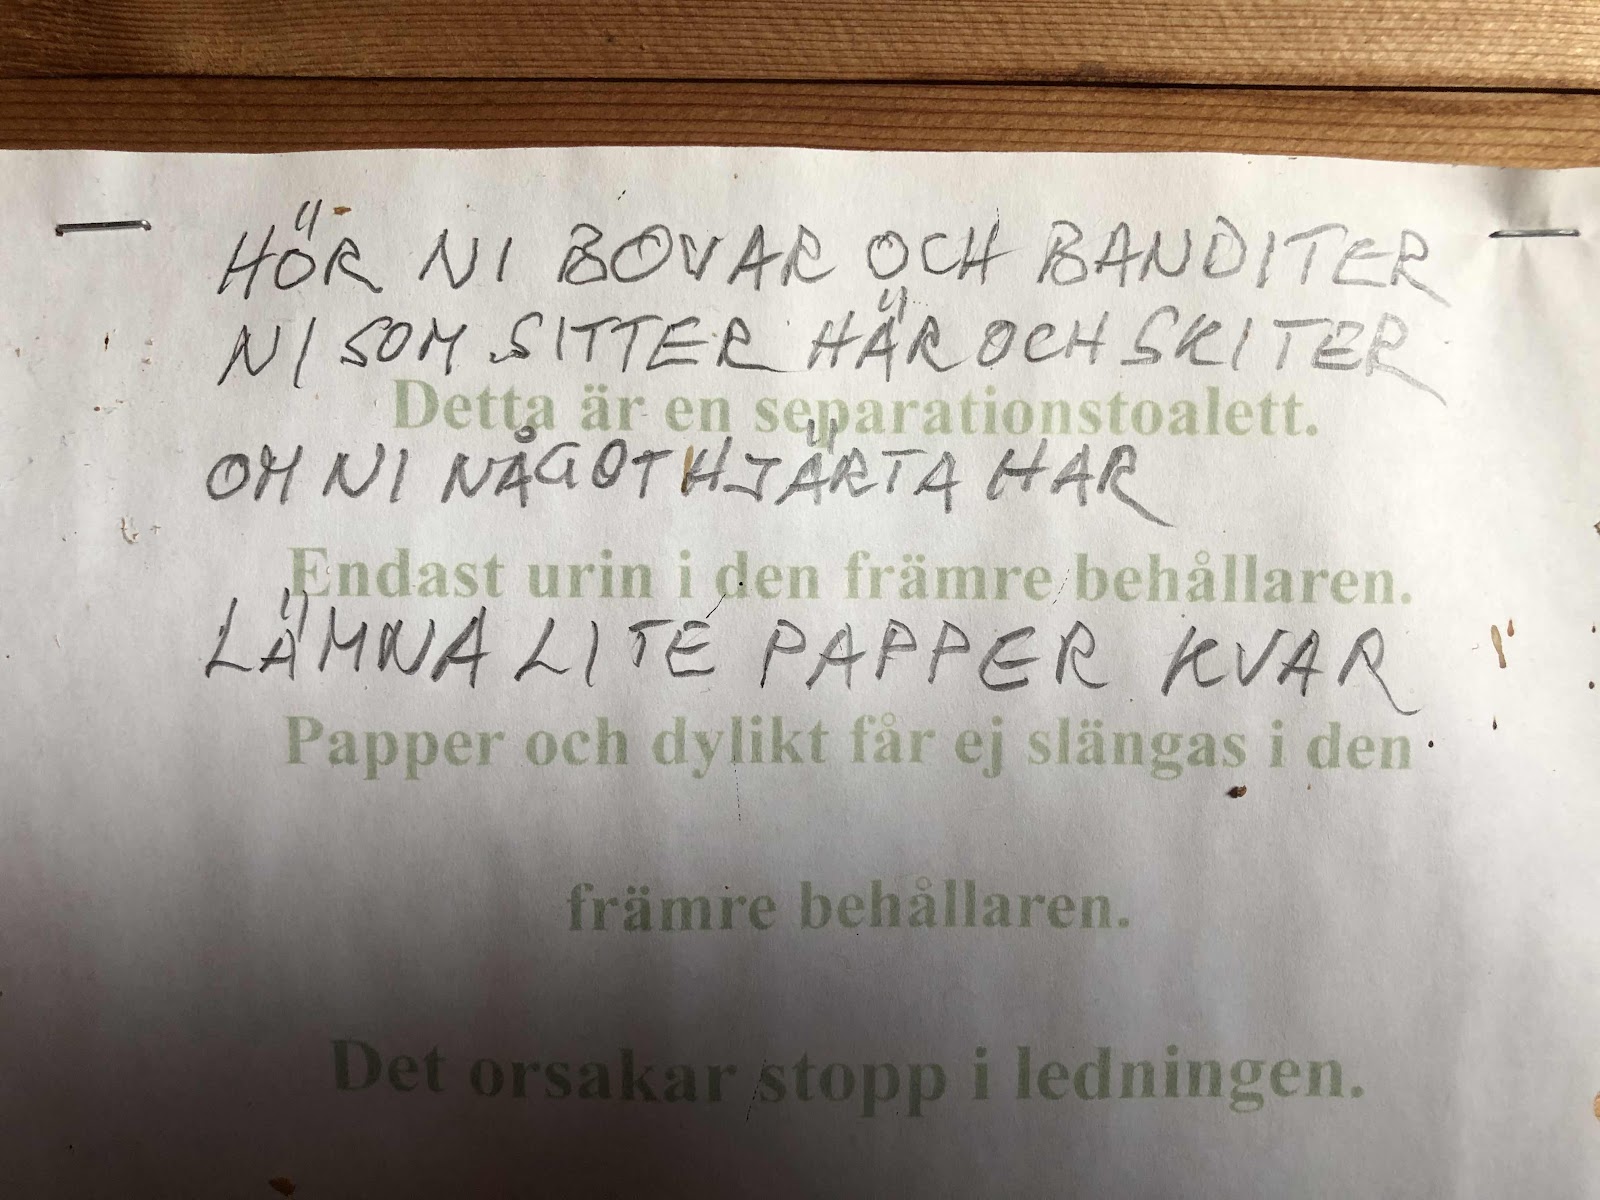 HÖR NI BOVAR OCH BANDITER
NI SOM SITTER HÄR OCH SKITER
Detta är en separationstoalett.
OM NI NÅGOT HJÄRTA HAR
Endast urin i den främre behållaren.
LÄMNA LITE PAPPER KVAR
Papper och dylikt får ej slängas i den
främre behållaren.
Det orsakar stopp i ledningen.